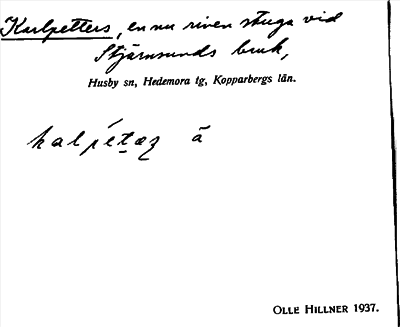 Karlpetters, en nu riven stuga vid
Stjärnsunds bruk,
Husby sn, Hedemora tg, Kopparbergs län.
kalpétæz ā
OLLE HILLNER 1937.